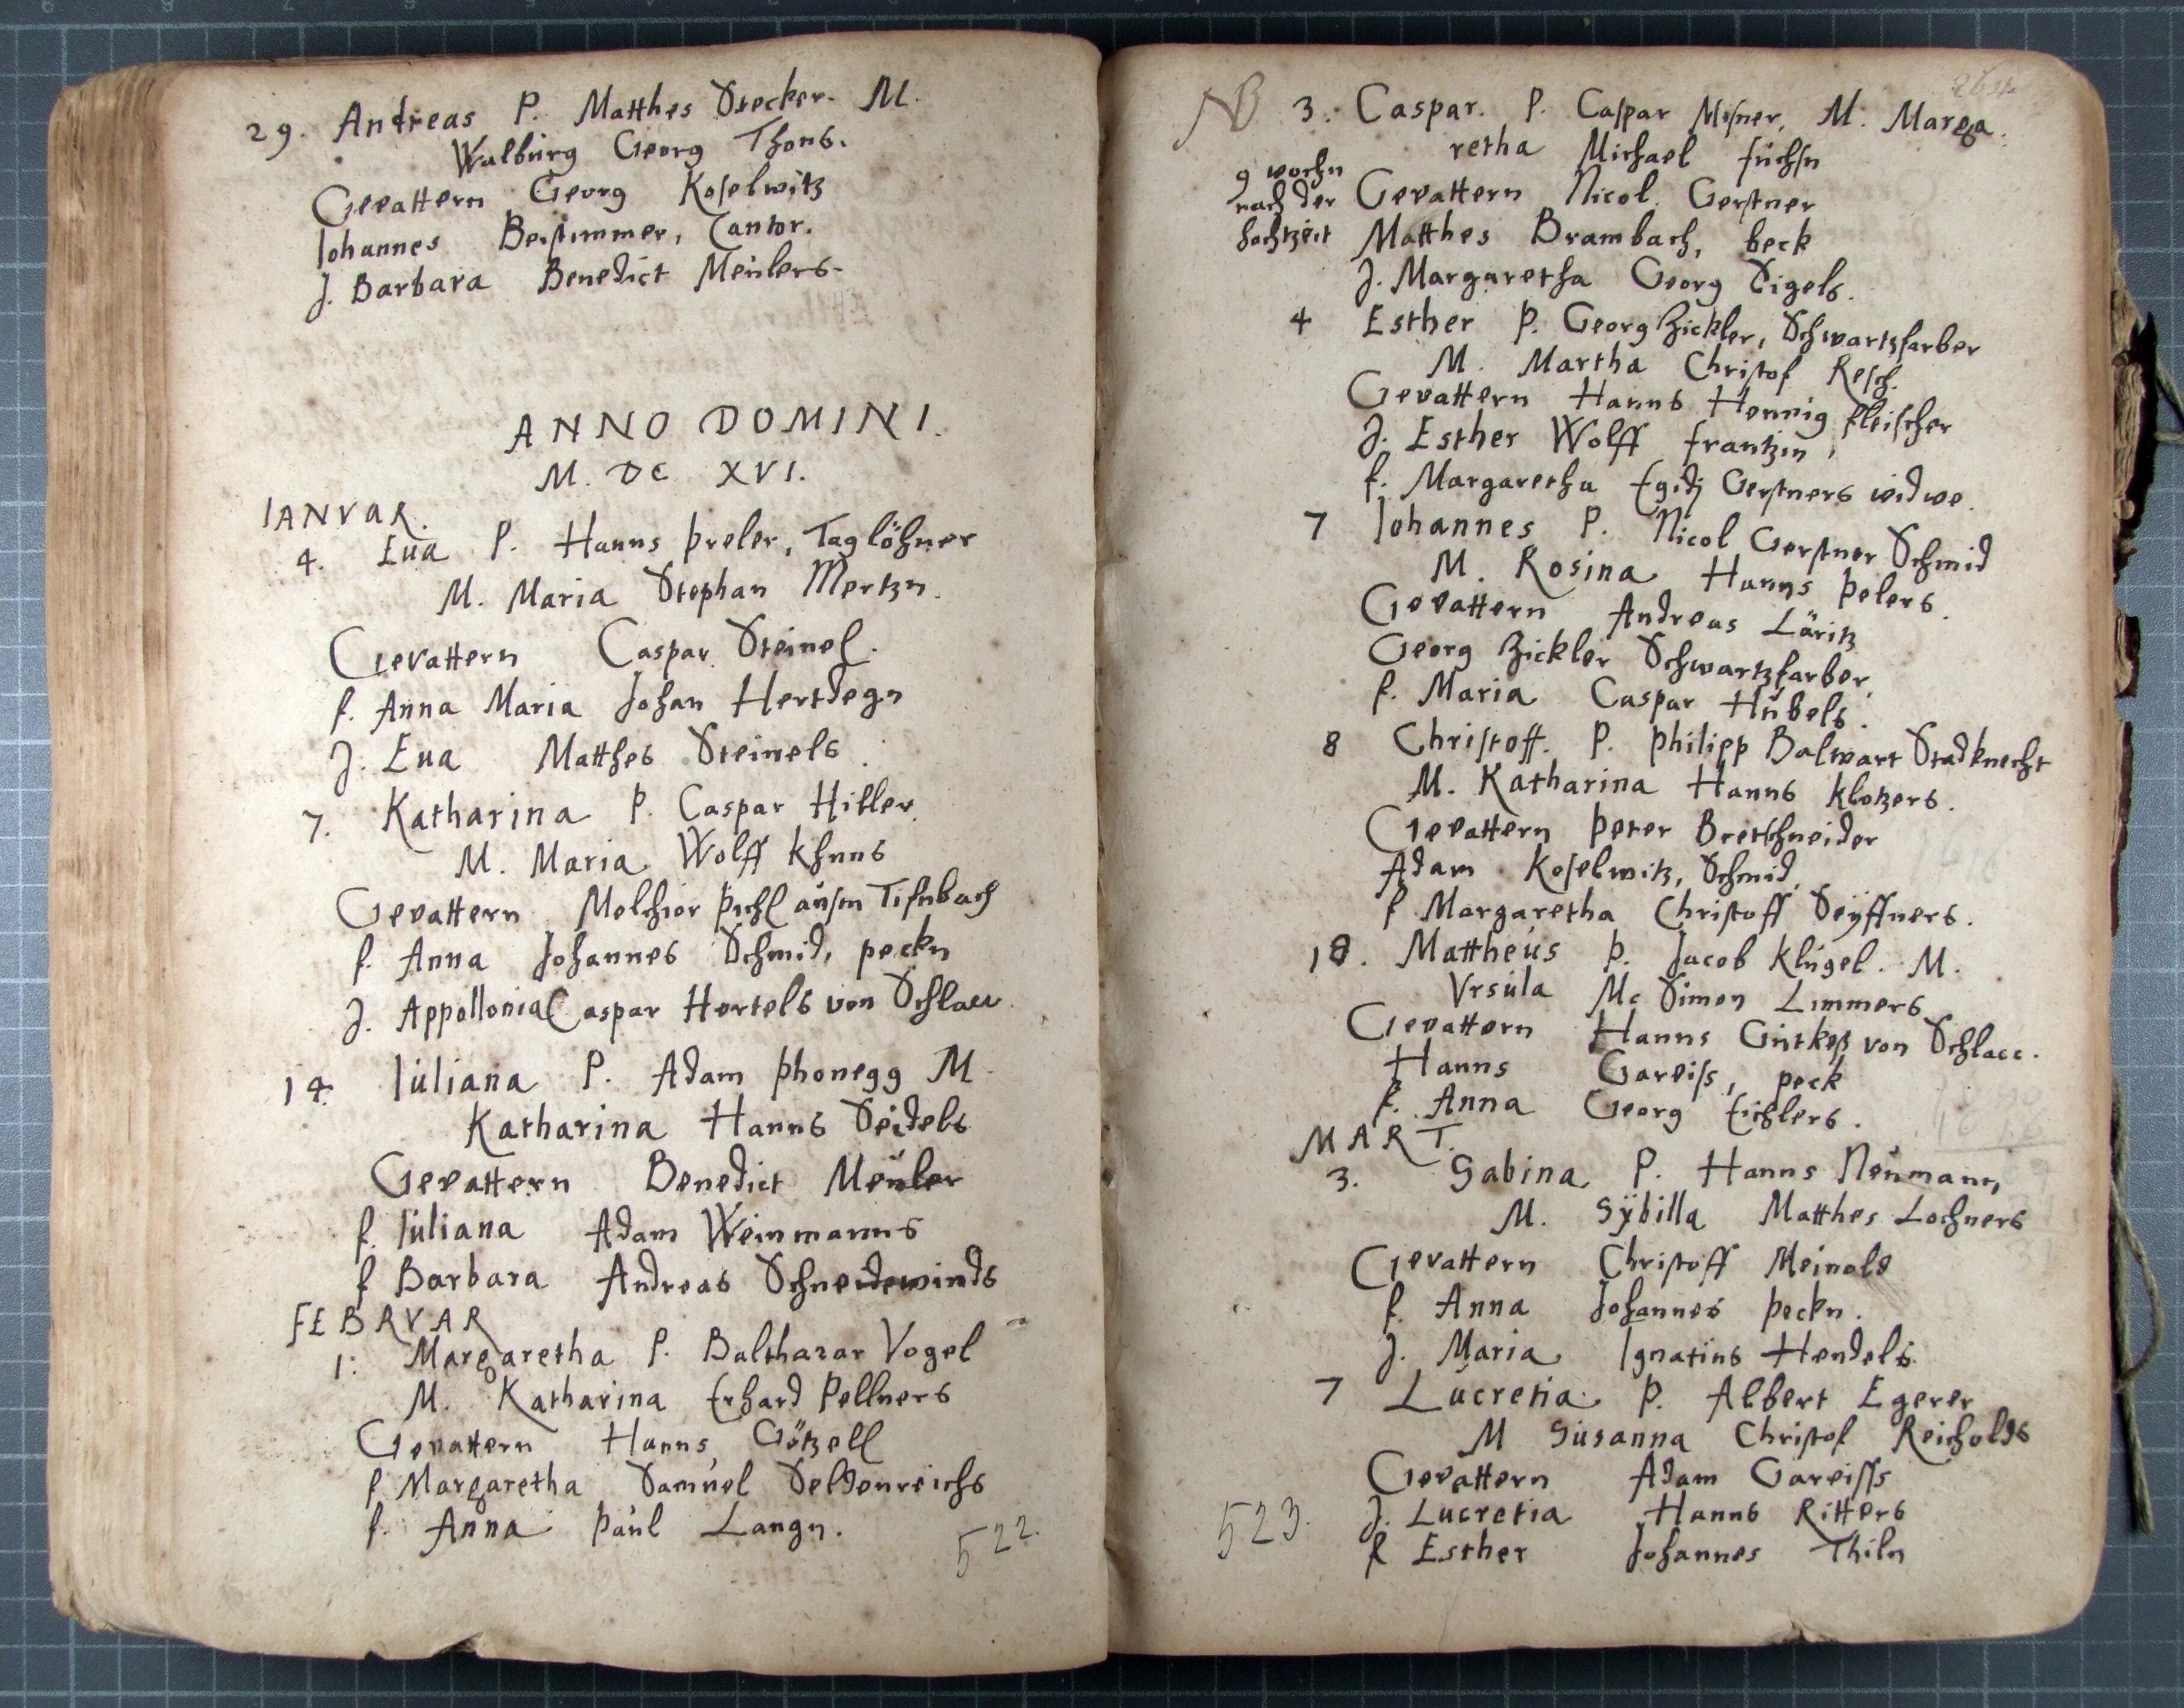 29. Andreas P. Matthes Stecker. M.
Walburg Georg Thons.
Gevattern Georg Koselwitz
Johannes Beistimmer, Cantor.
J. Barbara Benedict Meülers.
ANNO DOMINI.
M. DC XVI.
IANVAR.
4. Eua P. Hanns Preler, Taglöhner
M. Maria Stephan Mertzn.
Gevattern Caspar Steinel.
f. Anna Maria Johan Hertdegn
J. Eua Matthes Steinels.
7. Katharina P. Caspar Hiller.
M. Maria Wolff Khuns
Gevattern Melchior Pichl ausm Tifnbach
f. Anna Johannes Schmid, peckn
J. Appollonia Caspar Hertels von Schlacc.
14. Iuliana P. Adam Phonegg M.
Katharina Hanns Seidels
Gevattern Benedict Meüler
f. Iuliana Adam Weinmanns
f Barbara Andreas Schneidewinds
FEBRVAR
1. Margaretha P. Balthazar Vogel
M. Katharina Erhard Pellners
Gevattern Hanns Götzell
f Margaretha Samuel Seldenreichs
f. Anna Paul Langn.
522.
NB 3. Caspar. P. Caspar Misner. M. Marga.
retha Michael Fuchsn
9 wochn
nach der Gevattern Nicol. Gerstner
hochzeit Matthes Brambach, beck
J. Margaretha Georg Sigels.
4 Esther P. Georg Zickler, Schwartzfarber
M. Martha Christof Resch.
Gevattern Hanns Hennig fleischer
J. Esther Wolff Frantzin,
f. Margaretha Egidj Gerstners widwe.
7 Johannes P. Nicol Gerstner Schmid
M. Rosina Hanns Pelers.
Gevattern Andreas Läritz
Georg Zickler Schwartzfarber.
f. Maria Caspar Hübels.
8 Christoff. P. Philipp Balwart Stadknecht
M. Katharina Hanns Klotzers.
Gevattern Peter Bretschneider
Adam Koselwitz, Schmid.
f Margaretha Christoff Seÿffners.
18. Mattheus P. Jacob Klugel. M.
Vrsula Mc Simon Limmers
Gevattern Hanns von Schlacc.
Hanns Gareiss, peck
f. Anna Georg Eichlers.
MART.
3. Sabina P. Hanns Neumann
M. Sÿbilla Matthes Lochners
Gevattern Christoff Meinald
f. Anna Johannes Peckn.
J. Maria Ignatius Hendels.
7 Lucretia. P. Albert Egerer
M Susanna Christof Reicholds
Gevattern Adam Gareisss
523. J. Lucretia Hanns Ritters
f Esther Johannes Thiln